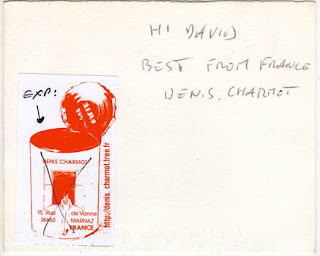 HI DAVID
BEST FROM FRANCE
DENIS. CHARMOT
EXP:
DENIS CHARMOT
15, Rue de Vanne
MARNAZ
FRANCE
http://denis.charmot.free.fr